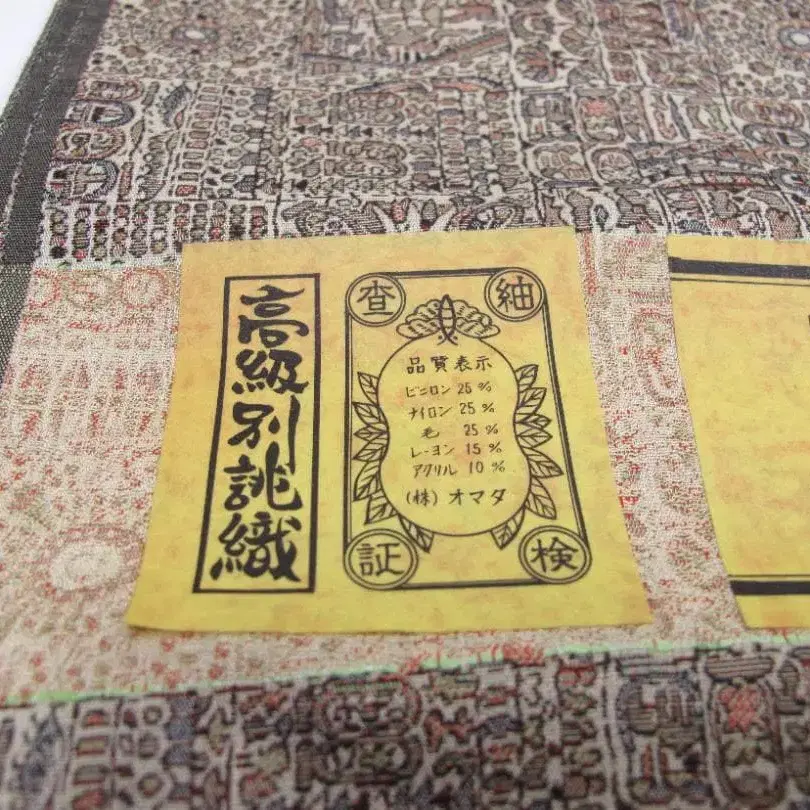 高級別誂織
査 紬
品質表示
ビニロン 25 %
ナイロン 25 %
毛 25 %
レーヨン 15 %
アクリル 10 %
(株) オマタ
証 検